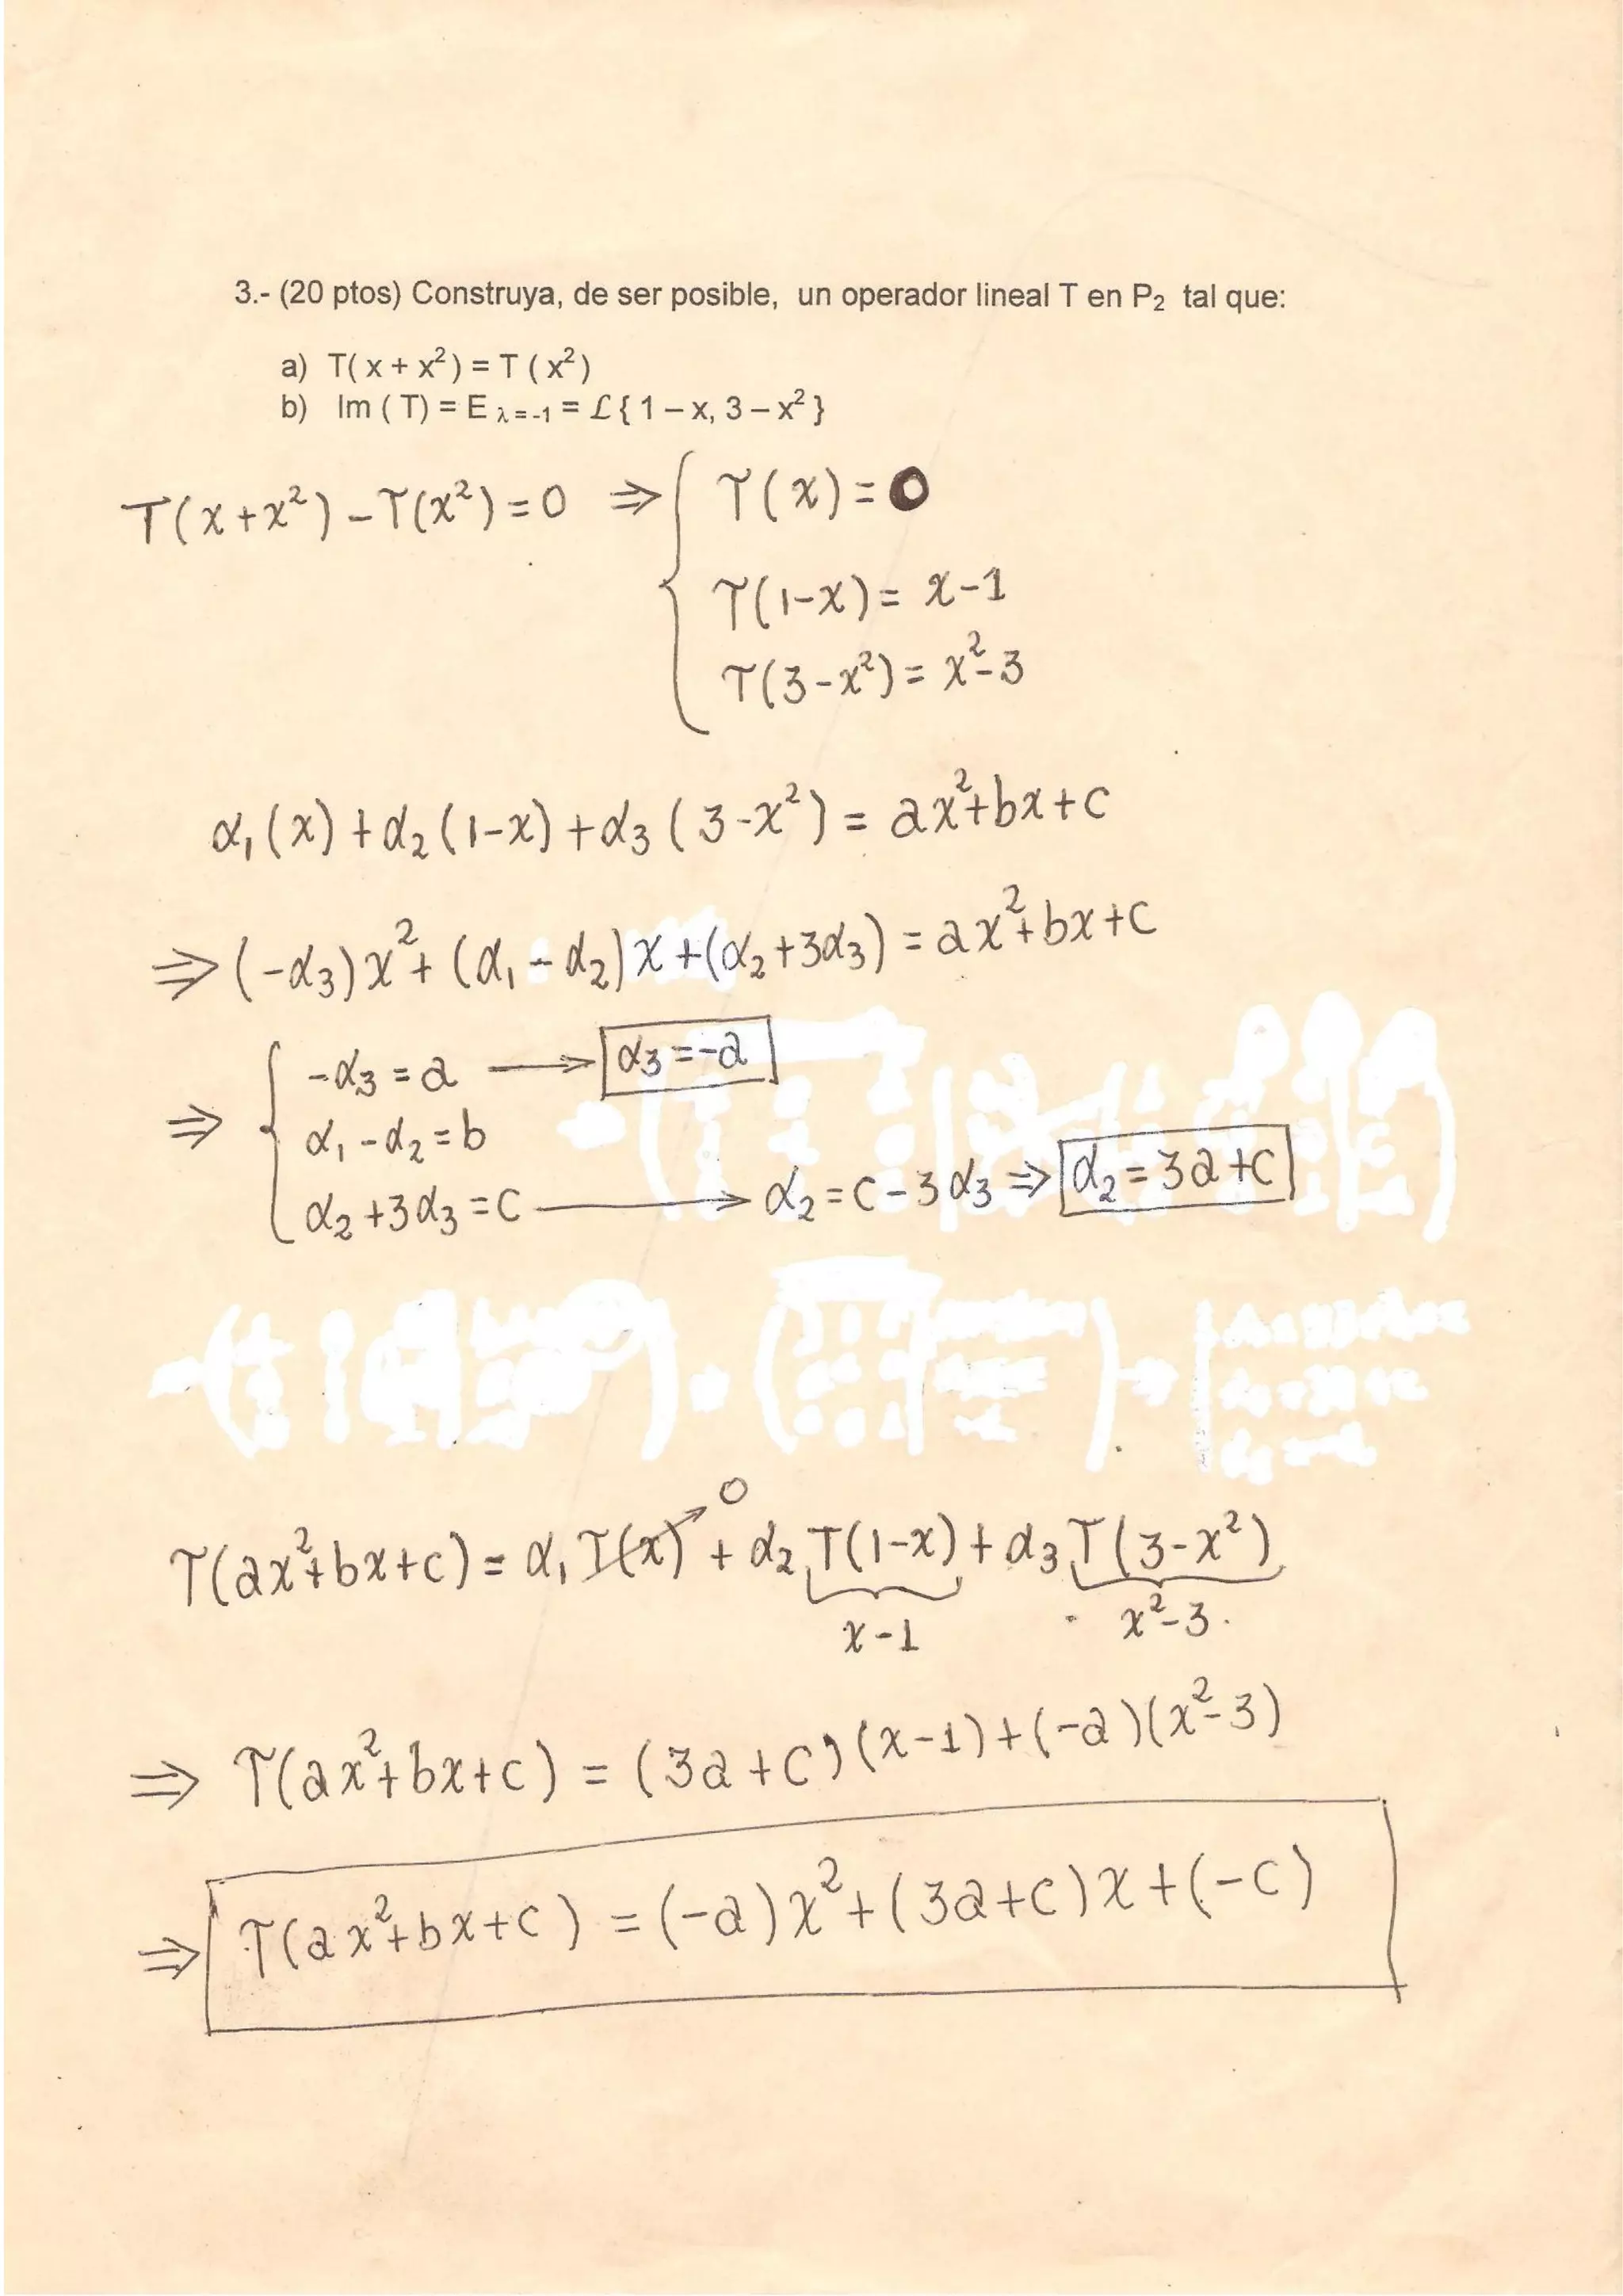 3.- (20 ptos) Construya, de ser posible, un operador lineal T en P₂ tal que:
a) T( x + x² ) = T ( x² )
b) Im ( T) = E λ = -1 = ℒ { 1 – x, 3 – x² }
T(x+x²) - T(x²) = 0 ⇒ { T(x) = 0
T(1-x) = x-1
T(3-x²) = x²-3
α₁(x) + α₂(1-x) + α₃(3-x²) = ax²+bx+c
⇒ (-α₃)x² + (α₁ - α₂)x + (α₂+3α₃) = ax²+bx+c
⇒ { -α₃ = a → α₃ = -a
α₁ - α₂ = b
α₂ + 3α₃ = c → α₂ = c - 3α₃ ⇒ α₂ = 3a+c
T(ax²+bx+c) = α₁ T(x) → 0 + α₂ T(1-x) + α₃ T(3-x²)
x-1 x²-3
⇒ T(ax²+bx+c) = (3a+c)(x-1)+(-a)(x²-3)
⇒ T(ax²+bx+c) = (-a)x²+(3a+c)x+(-c)